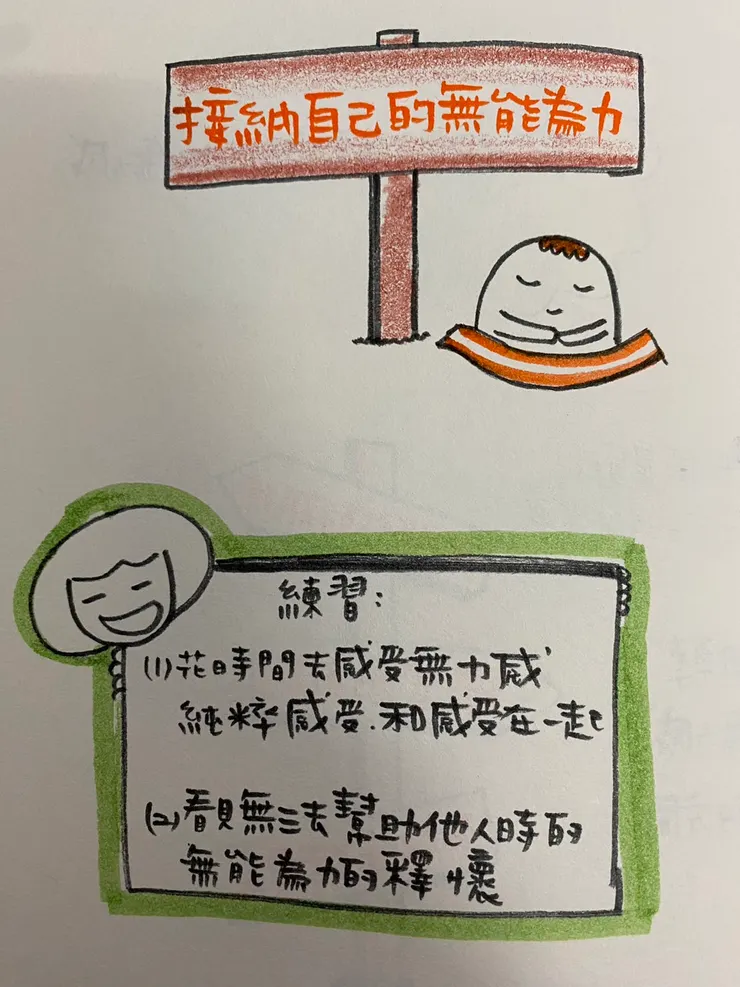 接納自己的無能為力
練習:
(1)花時間去感受無力感
純粹感受.和感受在一起
(2)看見無法幫助他人時的
無能為力的釋懷